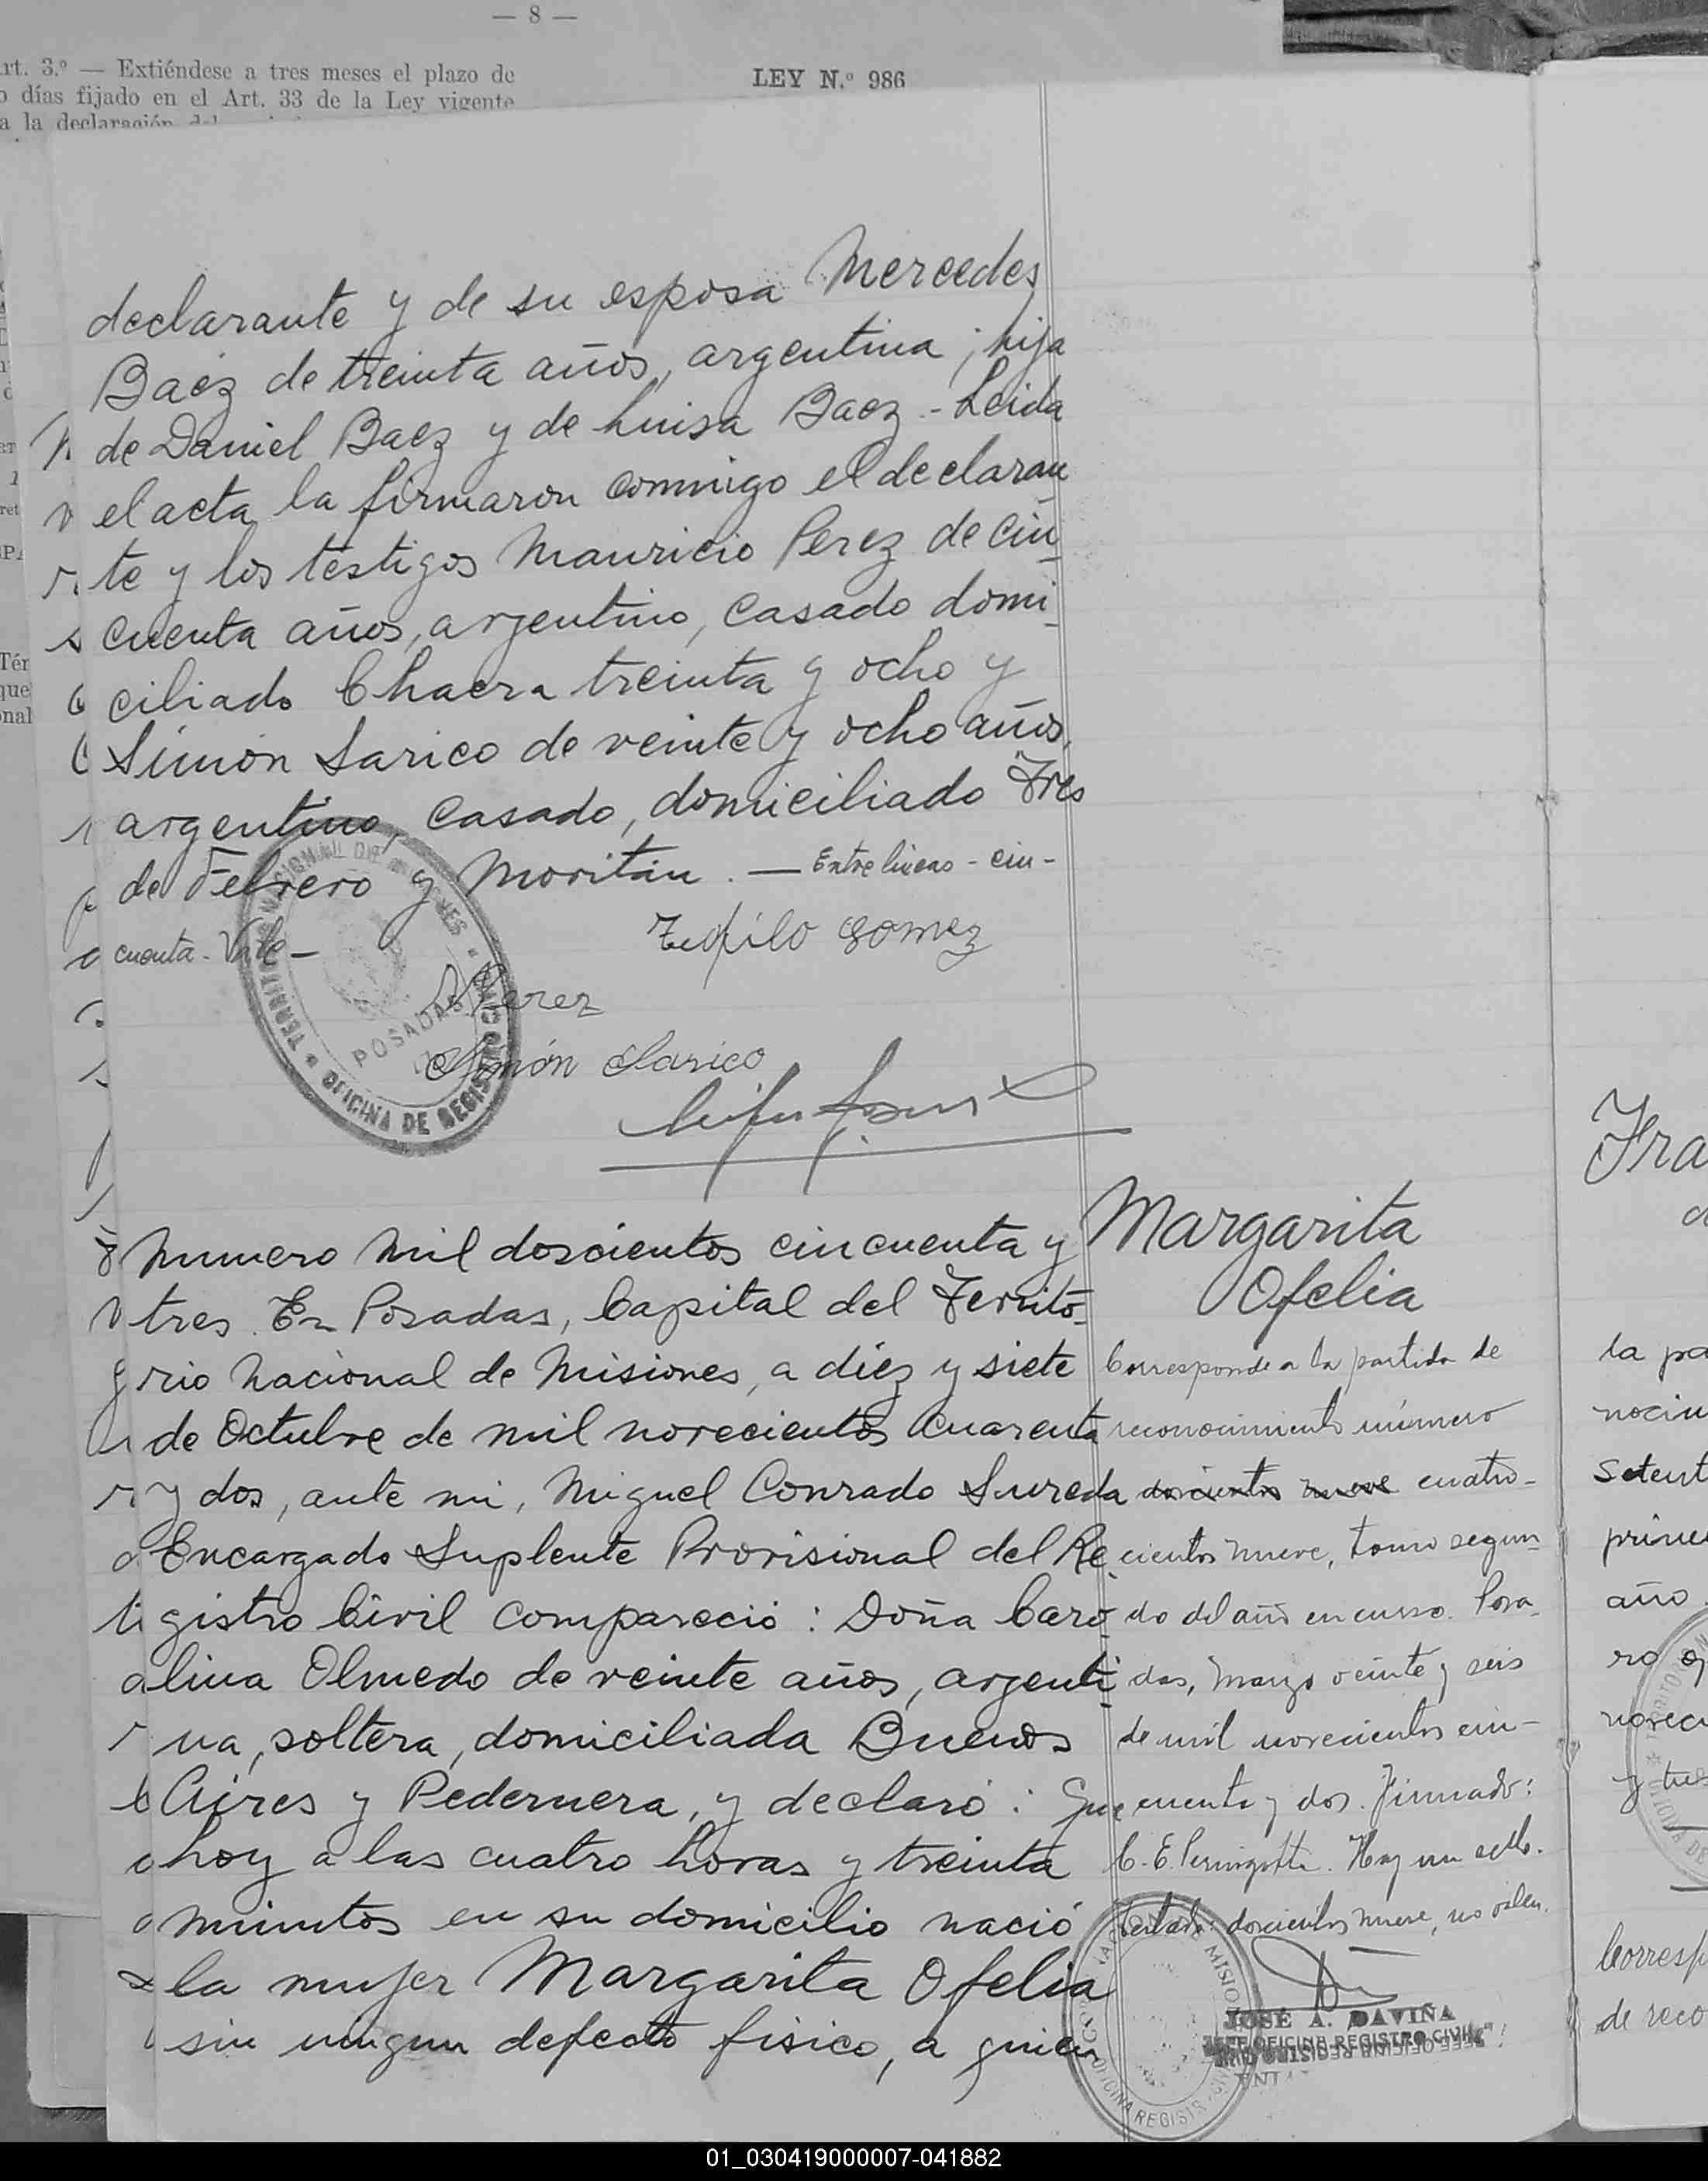 — 8 —
rt. 3.º — Extiéndese a tres meses el plazo de
o días fijado en el Art. 33 de la Ley vigente
a la declaración
LEY N.º 986
declarante y de su esposa Mercedes
Baéz de treinta años, argentina; hija
de Daniel Baez y de Luisa Baez - Leida
el acta la firmaron conmigo el declaran
te y los testigos Mauricio Perez de cin
cuenta años, argentino, casado domi
ciliado Chacra treinta y ocho y
Simón Sarico de veinte y ocho años,
argentino, casado, domiciliado Tres
de Febrero y Moritán. — Entre lineas - cin-
cuenta - Vale -
Teofilo Gomez
Perez
Simón Sarico
POSADAS
OFICINA DE REGISTRO
Numero mil doscientos cincuenta y
tres. En Posadas, Capital del Territo
rio Nacional de Misiones, a diéz y siete
de Octubre de mil novecientos cuarenta
y dos, ante mi, Miguel Conrado Sureda
Encargado Suplente Provisional del Re
gistro Civil compareció: Doña Caro
lina Olmedo de veinte años, argenti
na, soltera, domiciliada Buenos
Aires y Pedernera, y declaró: Que
hoy a las cuatro horas y treinta
minutos en su domicilio nació
la mujer Margarita Ofelia
sin ningun defecto fisico, a quien
Margarita
Ofelia
Corresponde a la partida de
reconocimiento número
doscientos nueve cuatro-
cientos nueve, tomo segun
do del año en curso. Posa
das, marzo veinte y seis
de mil novecientos cin-
cuenta y dos. Firmado:
C. E. Hay un sello.
Testado: doscientos nueve, no valen.
JOSÉ A. DAVIÑA
JEFE OFICINA REGISTRO CIVIL
Fra
la pa
nocim
setent
prime
año
ro
novec
y tres
Corresp
de reco
01_030419000007-041882